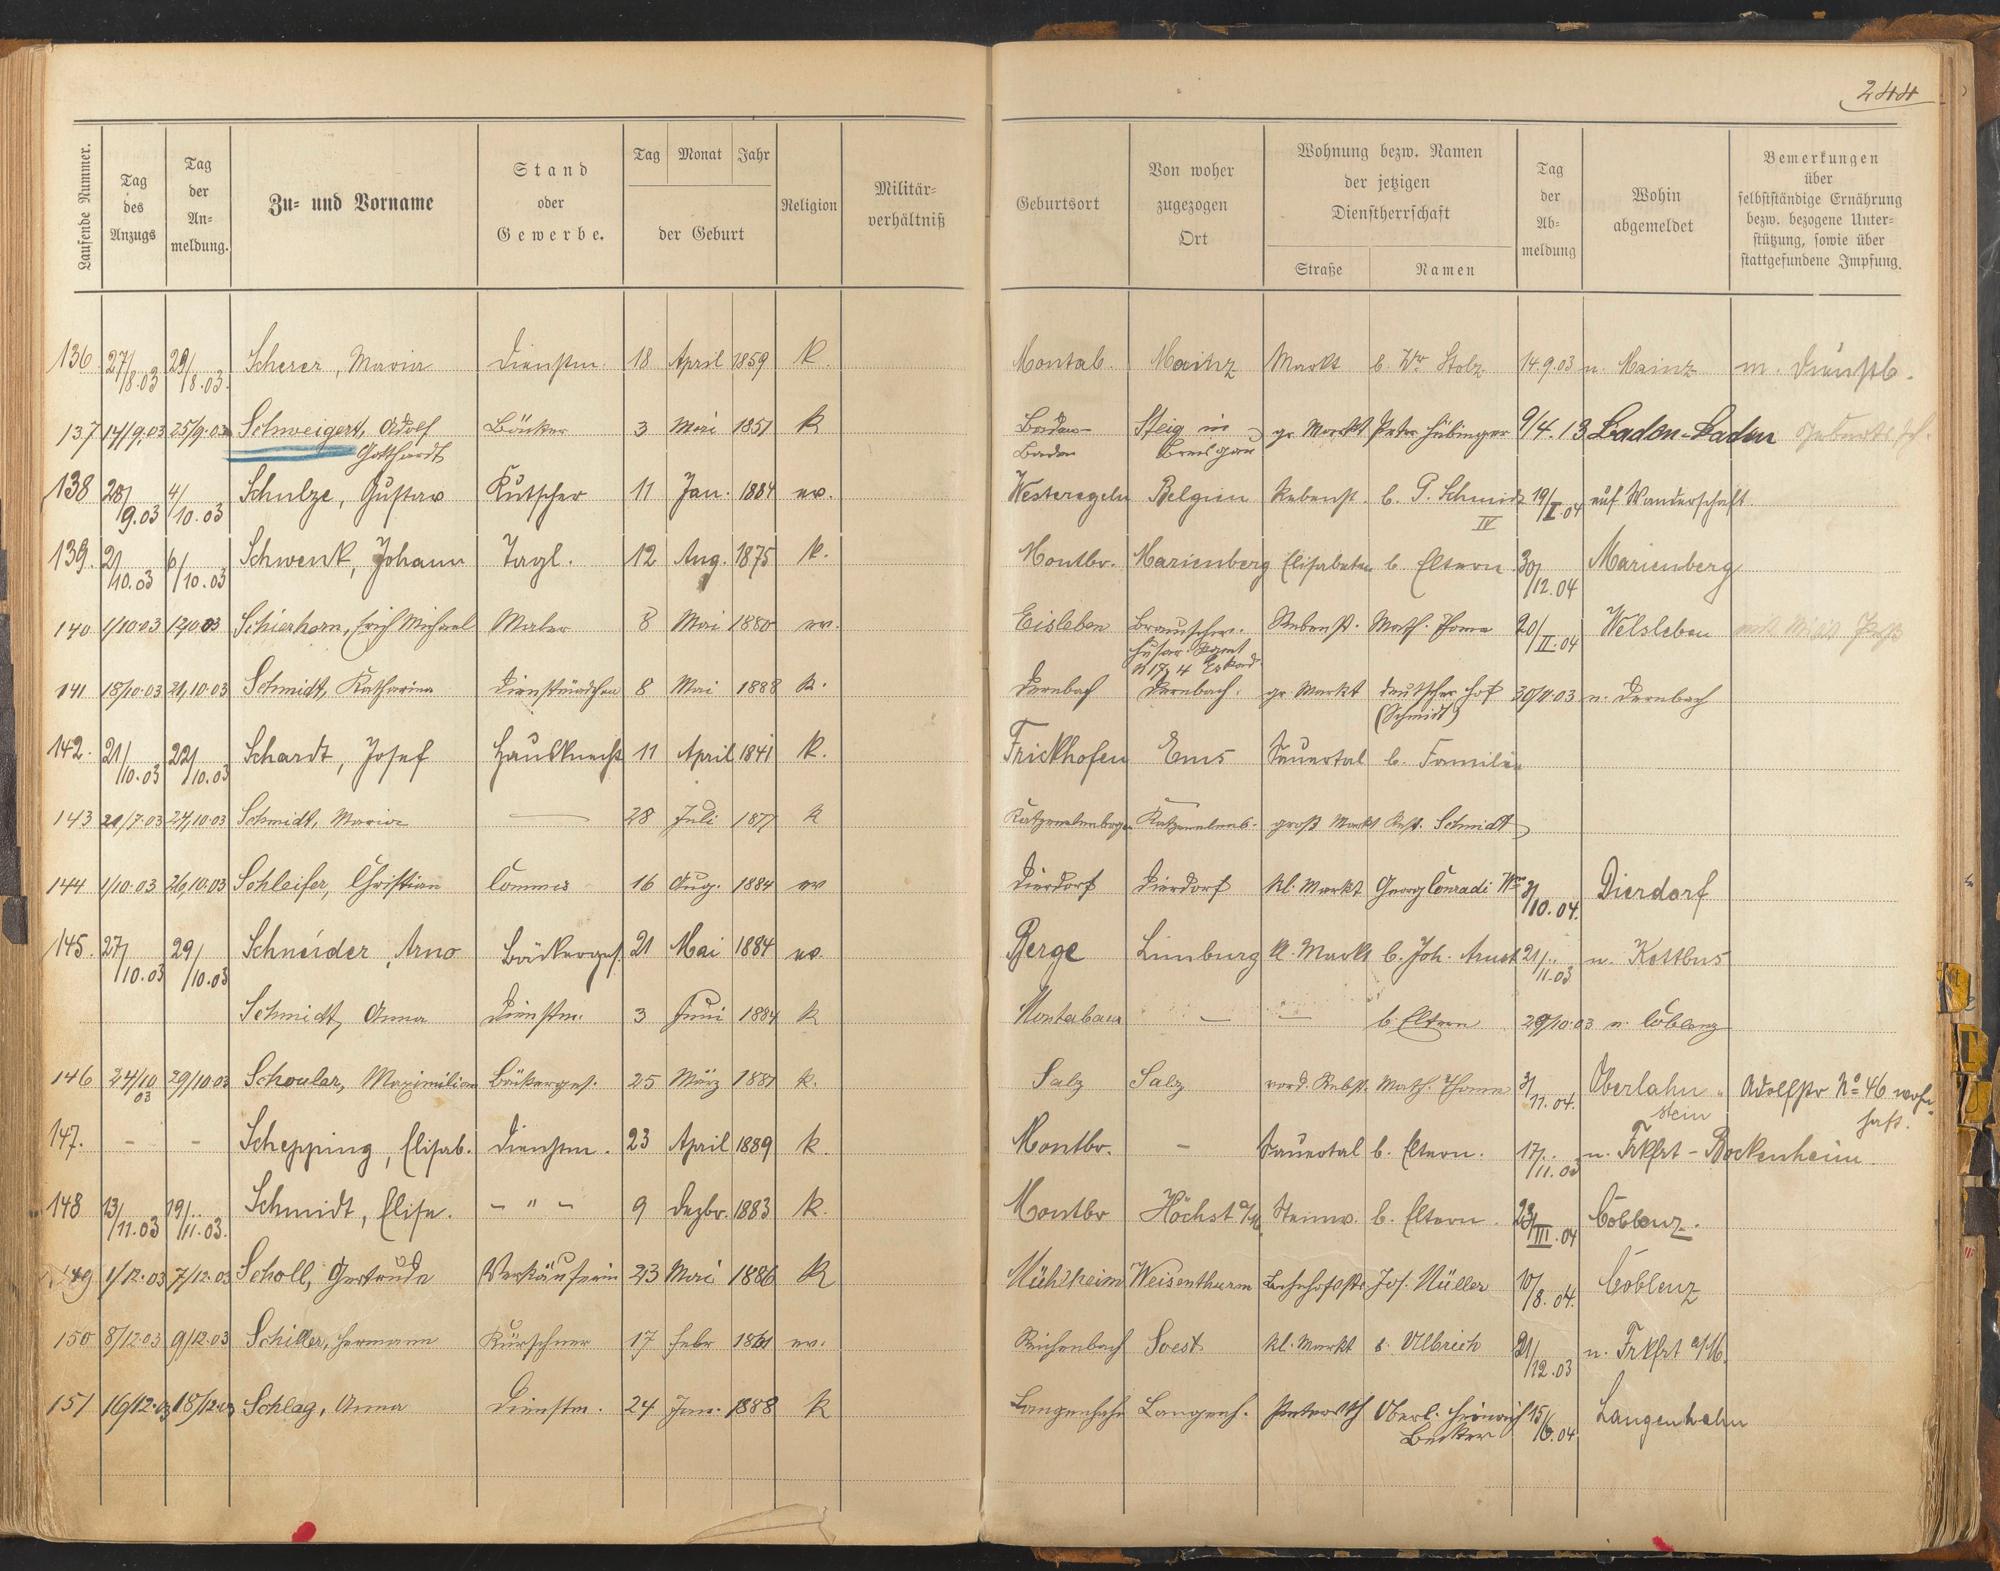 244
Laufende Nummer.
Tag des Anzugs
Tag der An-meldung.
Zu- und Vorname
Stand oder Gewerbe.
Tag Monat Jahr
der Geburt
Religion
Militär-verhältniß
Geburtsort
Von woher zugezogen Ort
Wohnung bezw. Namen der jetzigen Dienstherrschaft
Straße Namen
Tag der Ab-meldung
Wohin abgemeldet
Bemerkungen über selbstständige Ernährung bezw. bezogene Unter-stützung, sowie über stattgefundene Impfung.
136 27/8.03 29/8.03. Scherer, Maria Dienstm. 18 April 1859 K. Montab. Mainz Markt b. Ww Stolz 14.9.03 n. Mainz m. Dienstb.
137 14/9.03 25/9.03 Schweigert, Adolf Bäcker 3 Mai 1851 K Baden- Steig in gr. Markt Peter Hübinger 9/4.13 Baden-Baden
Gotthardt Baden Breisgau
138 28/9.03 4/10.03 Schulze, Gustav Kutscher 11 Jan. 1884 ev. Westeregeln Belgien Rebenst. b. P. Schmidt 19/I.04 auf Wanderschaft
IV
139. 2/10.03 6/10.03 Schwenk, Johann Tagl. 12 Aug. 1875 k. Montbr. Marienberg Elisabeten b. Eltern 30/12.04 Marienberg
140 1/10.03 12/10.03 Schierhorn, Erich Michael Maler 8 Mai 1880 ev. Eisleben Braunschw. Rebenst. Math. Thome 20/II.04 Welsleben
Husar. Regmt
N 17, 4 Eskad.
141 18/10.03 21,10.03 Schmidt, Katharina Dienstmädchen 8 Mai 1888 k. Dernbach Dernbach. gr. Markt deutscher Hof n. Dernbach
(Schmidt)
142. 21/10.03 22/10.03 Schardt, Josef Hausknecht 11 April 1841 k. Frickhofen Ems Sauertal b. Familie
143 24,10.03 Schmidt, Maria — 28 Juli 1877 k Katzenelnbogen Katzenelnb. groß Markt Rest. Schmidt
144 1/10.03 26,10.03 Schleifer, Christian Commis 16 Aug. 1884 ev Dierdorf Dierdorf kl. Markt Georg Conradi Wwe 3/10.04. Dierdorf
145. 27/10.03 29/10.03 Schneider, Arno Bäckerges. 21 Mai 1884 ev. Berge Limburg kl. Markt b. Joh. Arnst 21/11.03 n. Kottbus
Schmidt, Anna Dienstm. 3 Juni 1884 k Montabaur — — b. Eltern 29/10.03 n. Coblenz
146 24/10 03 29/10.03 Schouler, Maximilian Bäckerges. 25 März 1881 k. Salz Salz vord. Rebst. Math. Thome 3/11.04. Oberlahn- Adolfstr No 46 wohn-
stein haft.
147. - - Schepping, Elisab. Dienstm. 23 April 1889 k. Montbr. - Sauertal b. Eltern. 17/11.03 n. Frkfrt-Bockenheim
148 13/11.03 19/11.03. Schmidt, Elise. - " - 9 Dezbr. 1883 k. Montbr Höchst a/M. Steinw. b. Eltern. 23/III.04 Coblenz.
149 1/12.03 7/12.03 Scholl, Gertrude Verkäuferin 23 Mai 1886 K Mühlheim Weisenthurm Bahnhofstr. Jos. Müller 10/8.04. Coblenz
150 8/12.03 9/12.03 Schiller, Hermann Kürschner 17 Febr 1861 ev. Reichenbach Soest kl. Markt b. Ulbrich 21/12.03 n. Frkfrt a/M.
151 16/12.03 18/12.03 Schlag, Anna Dienstm. 24 Jan. 1888 K Langenhahn Langenh. Peterstth Oberl. Heinrich 15/6.04 Langenhahn
Becker